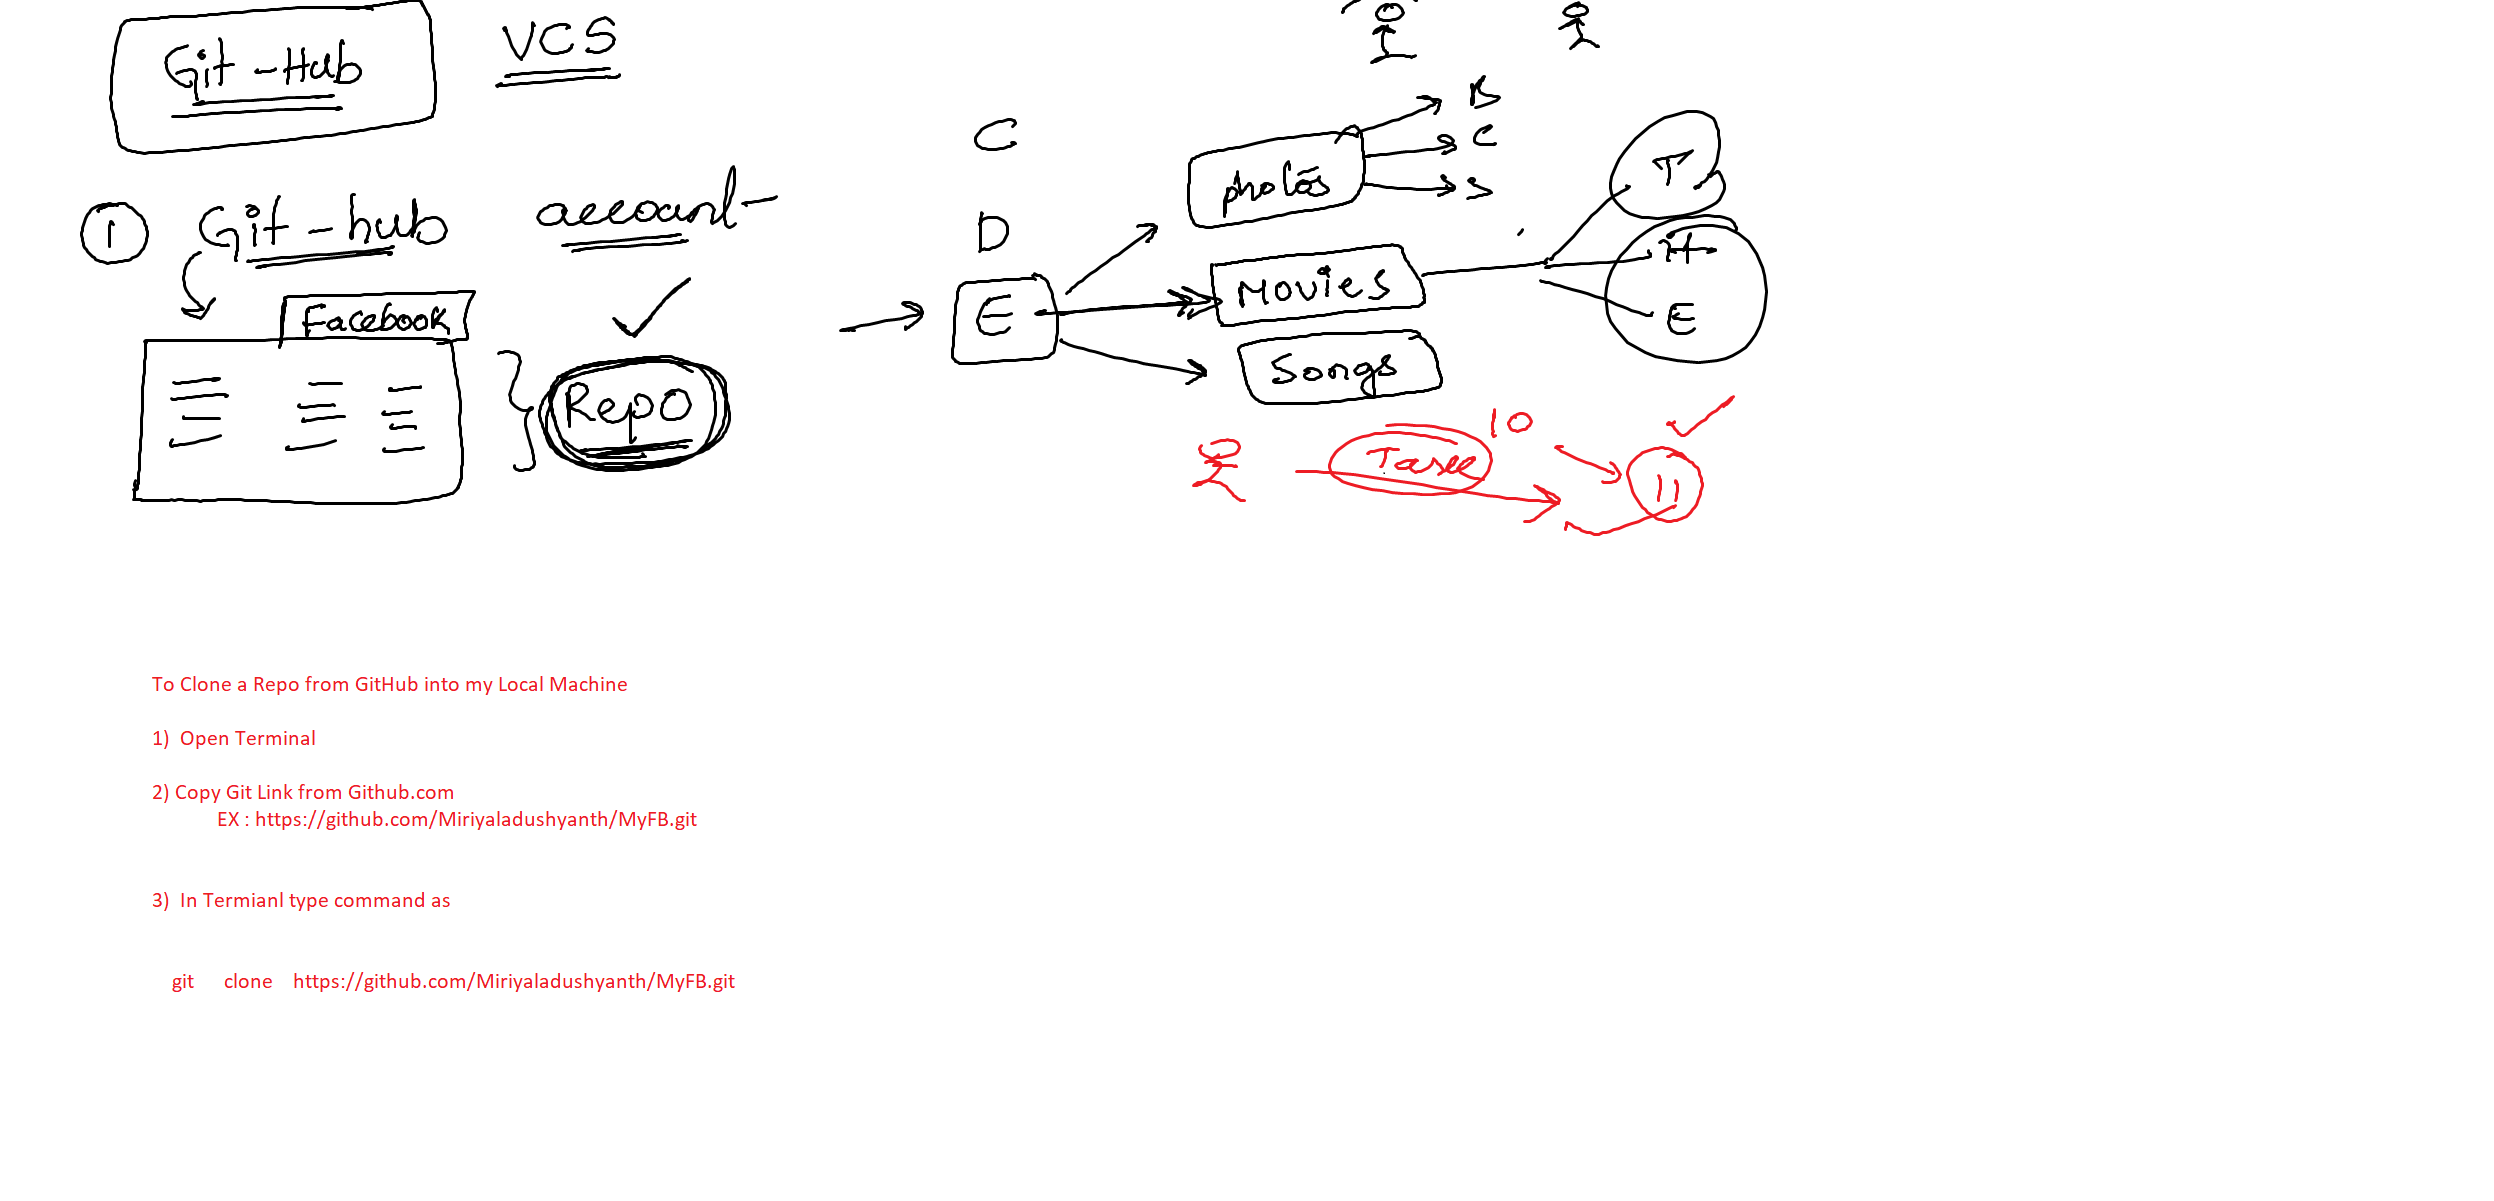 Git-Hub
VCS
1 Git-hub account
Facebook
Repo
C
D
E
B
C
S
Movies
T
H
E
Songs
Task
10
11
To Clone a Repo from GitHub into my Local Machine
1) Open Terminal
2) Copy Git Link from Github.com
EX : https://github.com/Miriyaladushyanth/MyFB.git
3) In Termianl type command as
git clone https://github.com/Miriyaladushyanth/MyFB.git